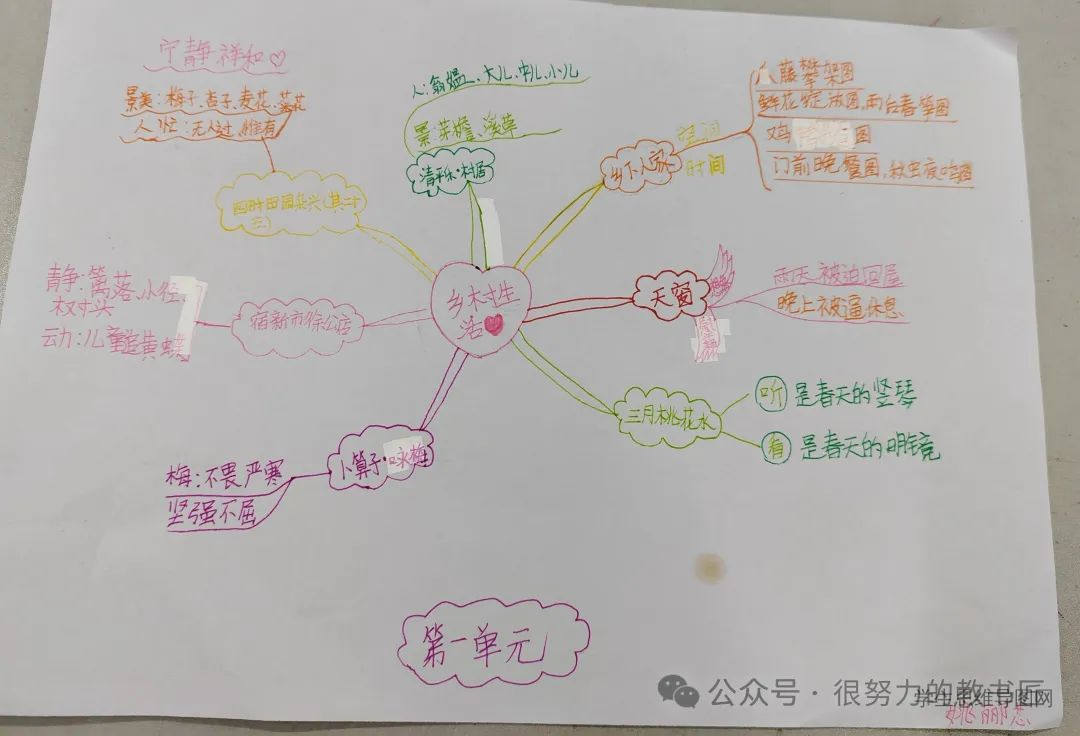 宁静、祥和♡
景美：梅子、杏子、麦花、菜花
人忙：无人过、惟有
四时田园杂兴(其二十
五)
人：翁媪、大儿、中儿、小儿
景：茅檐、溪草
清平乐·村居
乡下人家
空间
时间
藤攀架图
鲜花绽放图，雨后春笋图
鸡 图
门前晚餐图，秋虫夜鸣图
乡村生
活
天窗
雨天被迫回屋
晚上被逼休息
静：篱落、小径
动：儿童追黄蝶
宿新市徐公店
三月桃花水
听 是春天的竖琴
看 是春天的明镜
卜算子·咏梅
梅：不畏严寒
坚强不屈
第一单元
公众号·很努力的教书匠
学生思维导图网